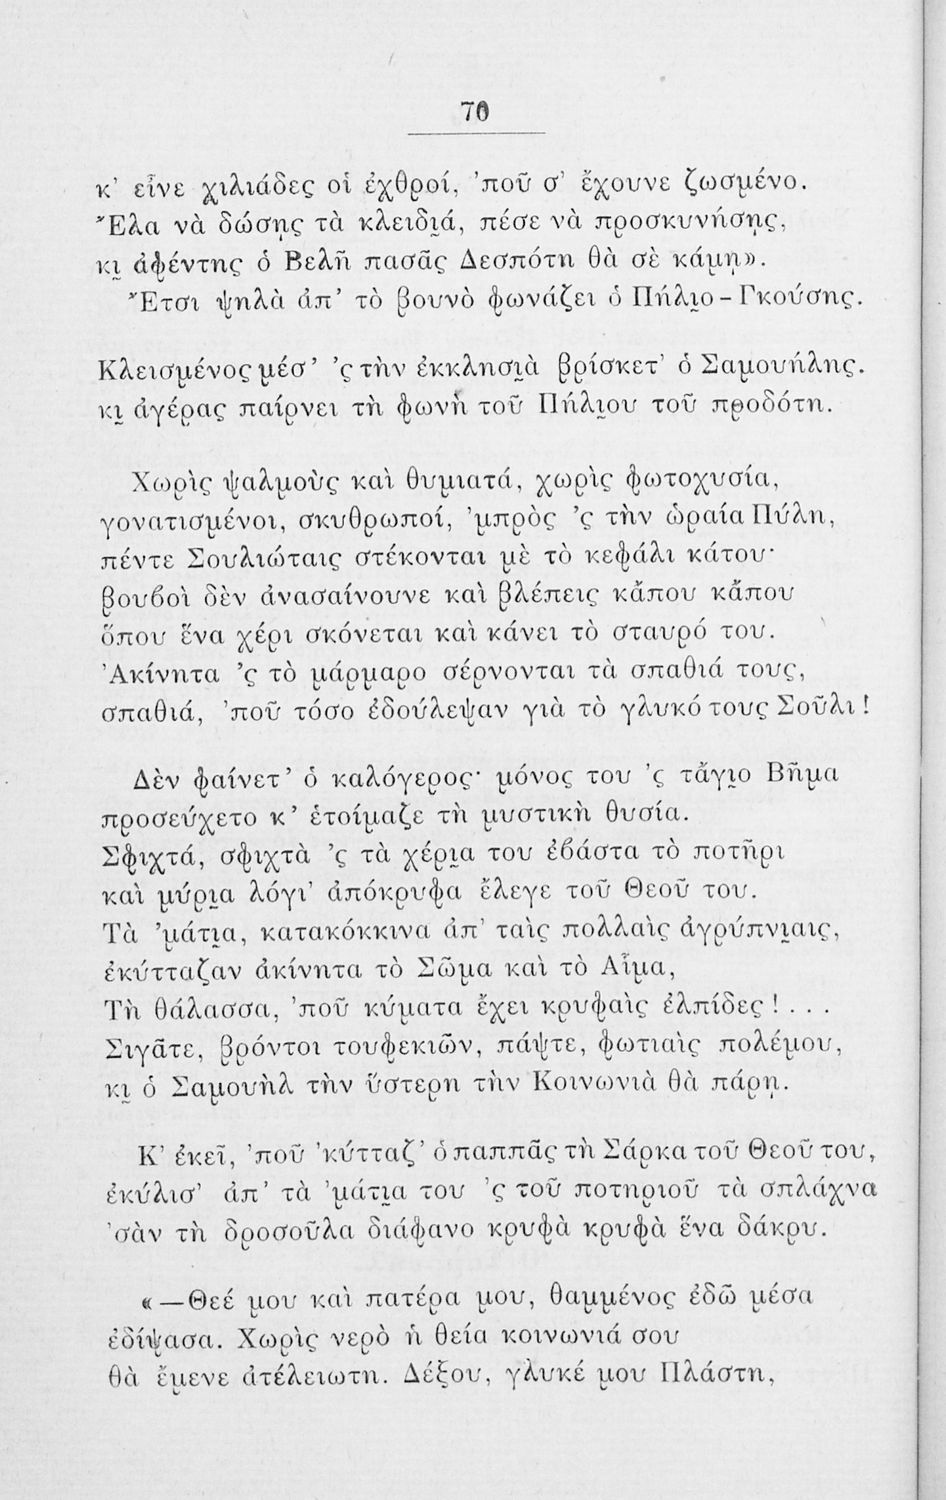 70
κ’ εἶνε χιλιάδες οἱ ἐχθροί, ’ποῦ σ’ ἔχουνε ζωσμένο.
Ἔλα νὰ δώσῃς τὰ κλειδι̮ά, πέσε νὰ προσκυνήσῃς,
κι̮ ἀφέντης ὁ Βελῆ πασᾶς Δεσπότη θὰ σὲ κάμῃ».
Ἔτσι ψηλὰ ἀπ’ τὸ βουνὸ φωνάζει ὁ Πήλι̮ο-Γκούσης.
Κλεισμένος μέσ’ ’ς τὴν ἐκκλησι̮ὰ βρίσκετ’ ὁ Σαμουήλης.
κι̮ ἀγέρας παίρνει τὴ φωνὴ τοῦ Πήλι̮ου τοῦ προδότη.
Χωρὶς ψαλμοὺς καὶ θυμιατά, χωρὶς φωτοχυσία,
γονατισμένοι, σκυθρωποί, ’μπρὸς ’ς τὴν ὡραία Πύλη,
πέντε Σουλιώταις στέκονται μὲ τὸ κεφάλι κάτου·
βουβοὶ δὲν ἀνασαίνουνε καὶ βλέπεις κἄπου κἄπου
ὅπου ἕνα χέρι σκόνεται καὶ κάνει τὸ σταυρό του.
Ἀκίνητα ’ς τὸ μάρμαρο σέρνονται τὰ σπαθιά τους,
σπαθιά, ’ποῦ τόσο ἐδούλεψαν γιὰ τὸ γλυκό τους Σοῦλι!
Δὲν φαίνετ’ ὁ καλόγερος· μόνος του ’ς τἄγι̮ο Βῆμα
προσεύχετο κ’ ἑτοίμαζε τὴ μυστικὴ θυσία.
Σφιχτά, σφιχτὰ ’ς τὰ χέρι̮α του ἐβάστα τὸ ποτῆρι
καὶ μύρι̮α λόγι’ ἀπόκρυφα ἔλεγε τοῦ Θεοῦ του.
Τὰ ’μάτι̮α, κατακόκκινα ἀπ’ ταὶς πολλαὶς ἀγρύπνι̮αις,
ἐκύτταζαν ἀκίνητα τὸ Σῶμα καὶ τὸ Αἷμα,
Τὴ θάλασσα, ’ποῦ κύματα ἔχει κρυφαὶς ἐλπίδες!...
Σιγᾶτε, βρόντοι τουφεκιῶν, πάψτε, φωτιαὶς πολέμου,
κι̮ ὁ Σαμουὴλ τὴν ὕστερη τὴν Κοινωνιὰ θὰ πάρῃ.
Κ’ ἐκεῖ, ’ποῦ ’κύτταζ’ ὁ παππᾶς τὴ Σάρκα τοῦ Θεοῦ του,
ἐκύλισ’ ἀπ’ τὰ ’μάτι̮α του ’ς τοῦ ποτηριοῦ τὰ σπλάχνα
’σὰν τὴ δροσοῦλα διάφανο κρυφὰ κρυφὰ ἕνα δάκρυ.
«—Θεέ μου καὶ πατέρα μου, θαμμένος ἐδῶ μέσα
ἐδίψασα. Χωρὶς νερὸ ἡ θεία κοινωνιά σου
θὰ ἔμενε ἀτέλειωτη. Δέξου, γλυκέ μου Πλάστη,